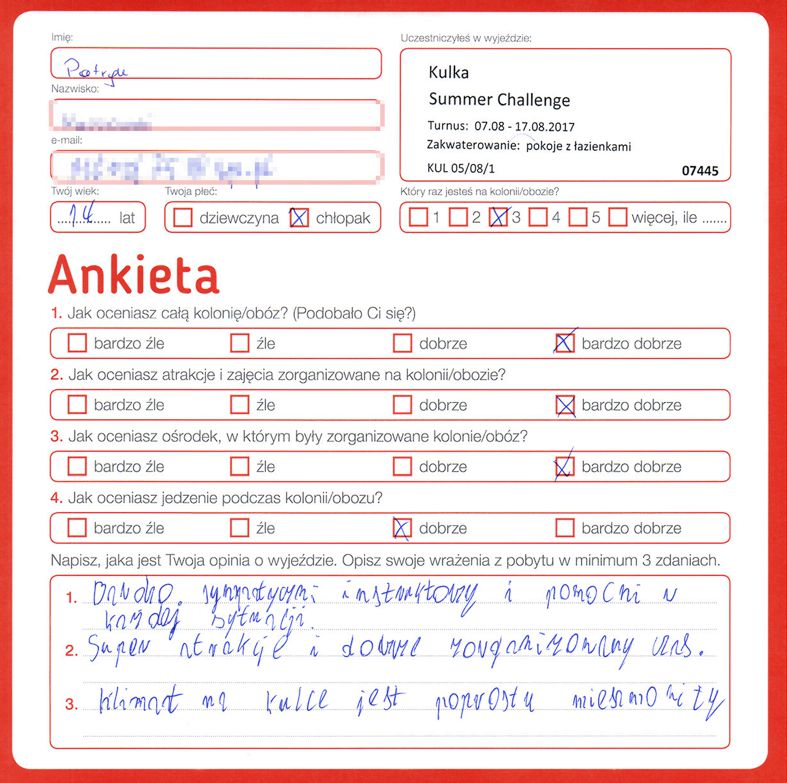 Imię:
Uczestniczyłeś w wyjeździe:
Patryk
Kulka
Nazwisko:
Summer Challenge
e-mail:
Turnus: 07.08 - 17.08.2017
Zakwaterowanie: pokoje z łazienkami
KUL 05/08/1 07445
Twój wiek: Twoja płeć: Który raz jesteś na kolonii/obozie?
14 lat dziewczyna chłopak 1 2 3 4 5 więcej, ile .......
Ankieta
1. Jak oceniasz całą kolonię/obóz? (Podobało Ci się?)
bardzo źle źle dobrze bardzo dobrze
2. Jak oceniasz atrakcje i zajęcia zorganizowane na kolonii/obozie?
bardzo źle źle dobrze bardzo dobrze
3. Jak oceniasz ośrodek, w którym były zorganizowane kolonie/obóz?
bardzo źle źle dobrze bardzo dobrze
4. Jak oceniasz jedzenie podczas kolonii/obozu?
bardzo źle źle dobrze bardzo dobrze
Napisz, jaka jest Twoja opinia o wyjeździe. Opisz swoje wrażenia z pobytu w minimum 3 zdaniach.
1. sympatyczni instruktorzy i pomocni w
każdej sytuacji.
2. Super atrakcje i dobrze zorganizowany czas.
3. Klimat na kulce jest poprostu niesamowity